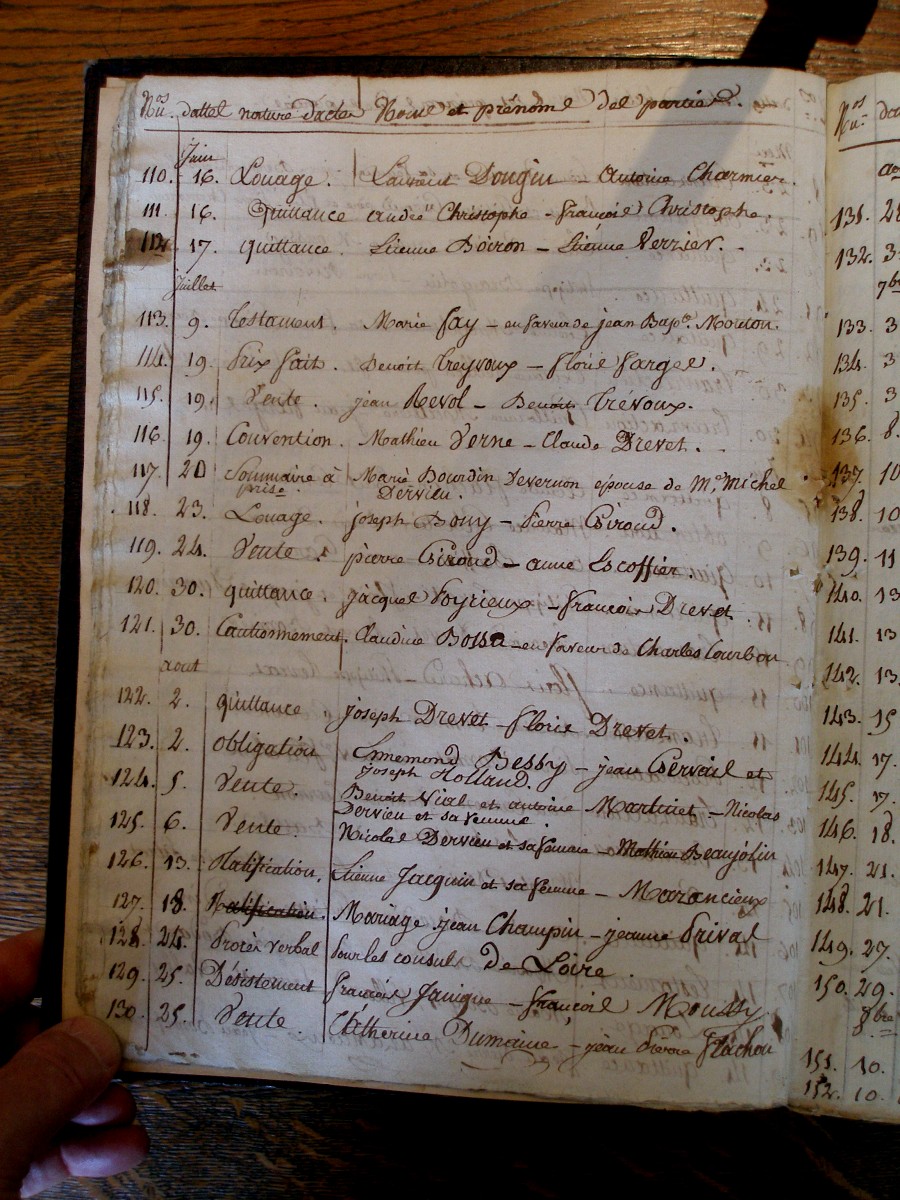 Nos
Nu. dattes nature d'actes Noms et prénoms des parties.
Juin
110. 16. Louage. Laurent Dougin - Antoine Charmier.
111. 16. Quittance andré Christophe - françois Christophe.
112. 17. quittance. Etienne Boiron - Etienne Verrier.
Juillet
113. 9. Testament. Marie fay - en faveur de jean Bapte. Mouton.
114. 19. Prix fait. Benoit Treyvoux - florie farges.
115. 19. Vente. jean Revol - Benoit Trévoux.
116. 19. Convention. Mathieu Verne - Claude Drevet.
117. 20 Sommaire à Marie Bourdin Devernon epouse de Me. Michel
prise. Dervieu.
118. 23. Louage. joseph Bony - Pierre Giroud.
119. 24. Vente. pierre Giroud - anne Escoffier.
120. 30. quittance. jacques Poyrieux - françois Drevet.
121. 30. Cautionnement. Claudine Bossu - en faveur de Charles Courbon
aout
122. 2. quittance joseph Drevet - florie Drevet.
123. 2. obligation Ennemond Bessy - jean Gervais et
joseph Rolland.
124. 5. Vente. Benoit Vial et antoine Martinet - Nicolas
Dervieu et sa femme.
125. 6. Vente. Nicolas Dervieu et sa femme - Mathieu Beaujolin
126. 13. Ratification. Etienne Jacquin et sa femme - Marancieux
127. 18. Ratification. Mariage jean Champin - jeanne Prival
128. 24. Procès verbal Pour les consuls de Loire.
129. 25. Désistement françois Janique - françois Moussy
130. 25. Vente. Catherine Dumaine - jean Pierre flachon
Nos
Nu.
131.
132. 3
7bre
133. 3
134. 3
135. 3
136. 8.
137. 10
138. 10
139. 11
140. 13
141. 13
142. 13.
143. 15
144. 17.
145. 17.
146. 18.
147. 21.
148. 21.
149. 27.
150. 29.
8bre
151. 10.
152. 10.